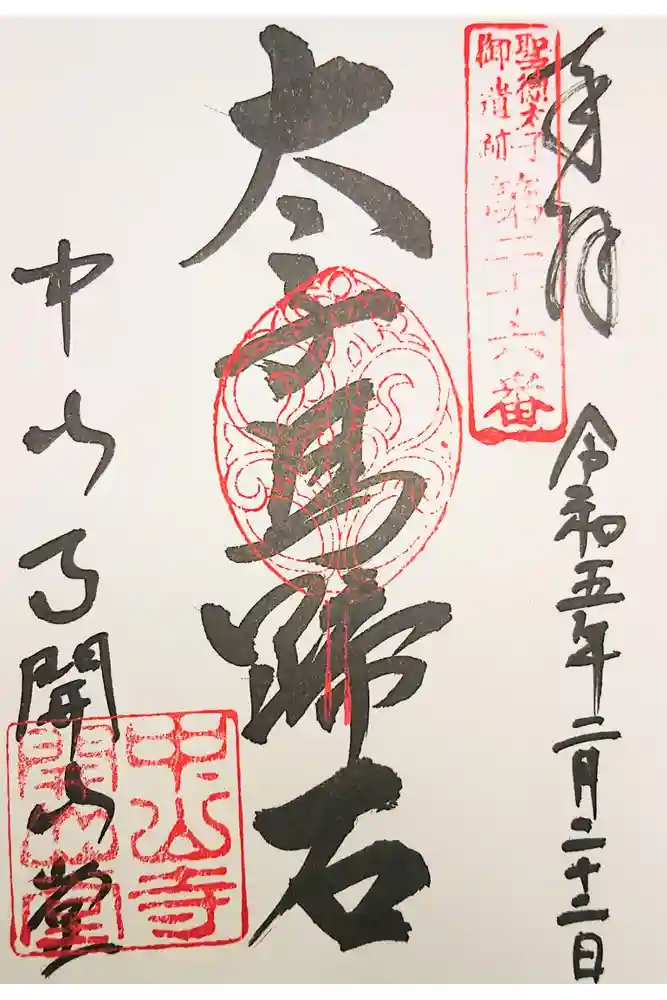 奉拝
令和五年二月二十三日
聖徳太子
御遺跡
第二十六番
太子馬蹄石
中山寺開山堂
中山寺
開山堂